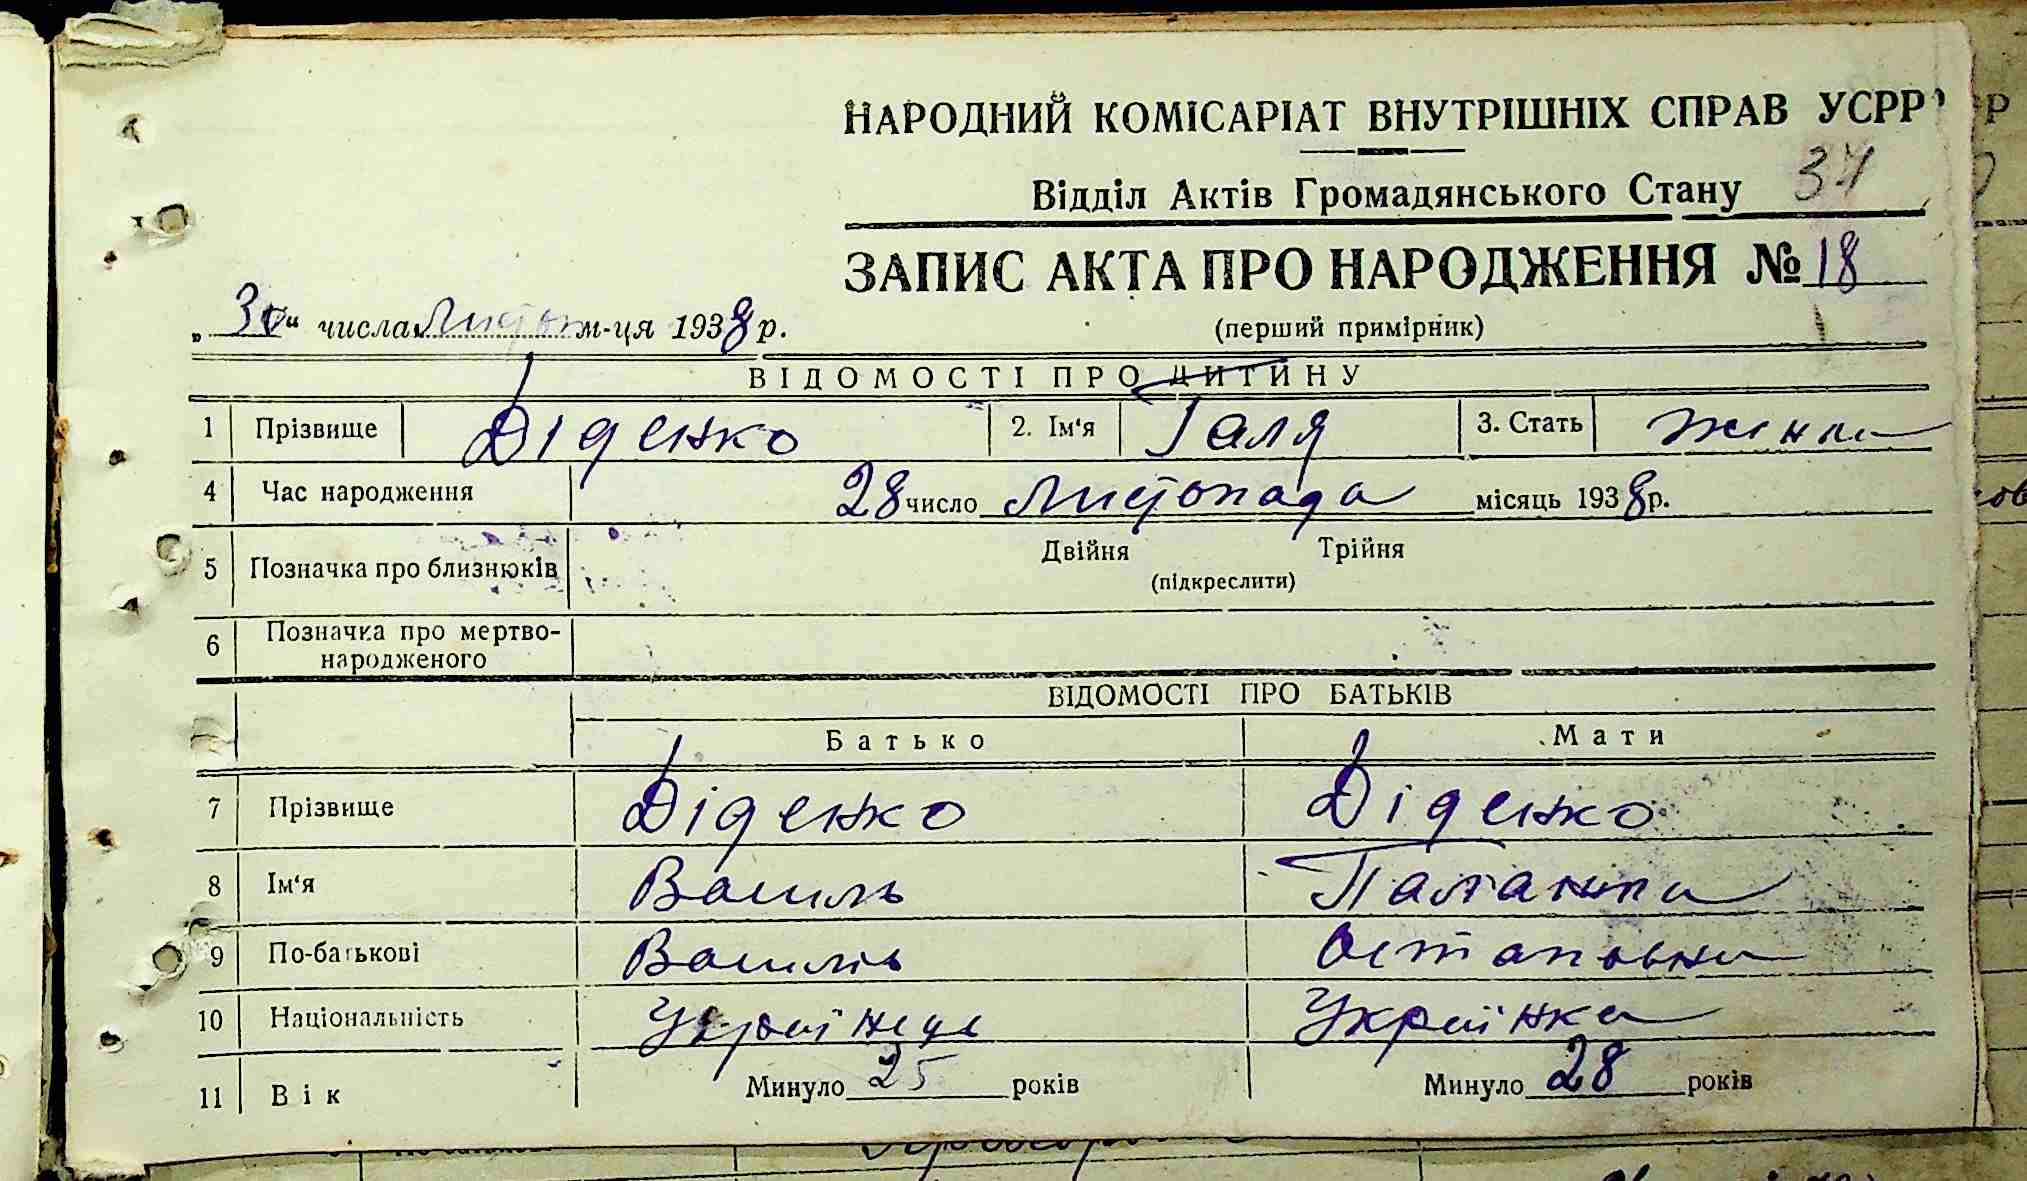 НАРОДНИЙ КОМІСАРІАТ ВНУТРІШНІХ СПРАВ УСРР
Відділ Актів Громадянського Стану 34
ЗАПИС АКТА ПРО НАРОДЖЕННЯ № 18
„30“ числа Листоп м-ця 1938 р.
(перший примірник)
ВІДОМОСТІ ПРО ДИТИНУ
1 Прізвище Діденко 2. Ім'я Галя 3. Стать жіноча
4 Час народження 28 число Листопада місяць 1938 р.
5 Позначка про близнюків Двійня Трійня
(підкреслити)
6 Позначка про мертво-
народженого
ВІДОМОСТІ ПРО БАТЬКІВ
Батько Мати
7 Прізвище Діденко Діденко
8 Ім'я Василь
9 По-батькові Василів Остаповна
10 Національність Українець Українка
11 Вік Минуло 25 років Минуло 28 років